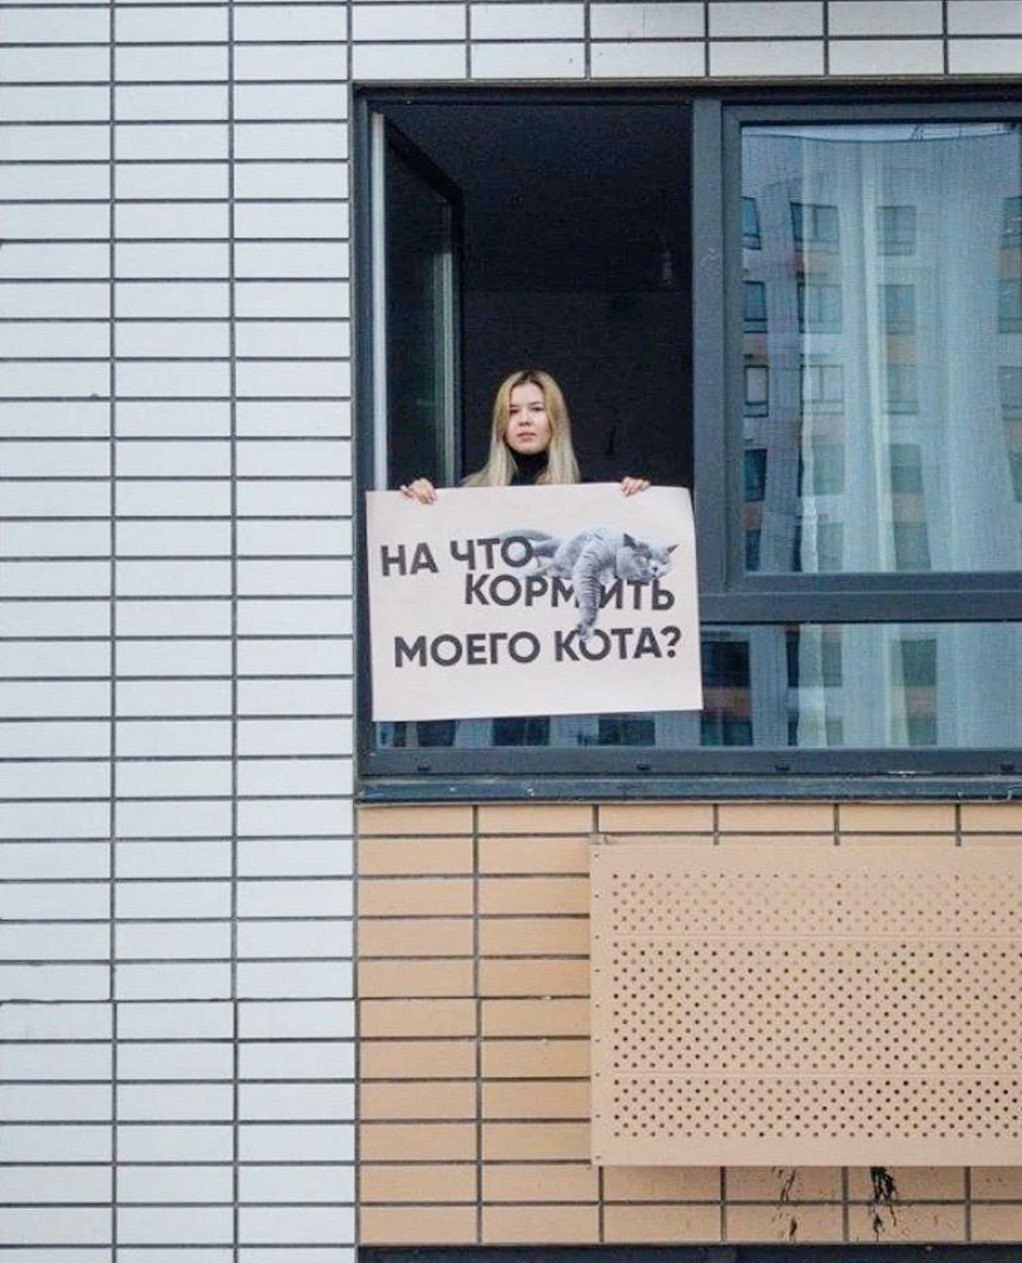 НА ЧТО
КОРМИТЬ
МОЕГО КОТА?